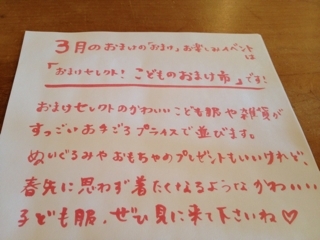 3月のおまけの「おまけ」お楽しみイベント
は
「おまけセレクト! こどものおまけ市」です!
おまけセレクトのかわいいこども服や雑貨が
すっごいお手ごろプライスで並びます。
ぬいぐるみやおもちゃのプレゼントもいいけれど、
春先に思わず着たくなるようなかわいい
子ども服、ぜひ見に来て下さいね♡